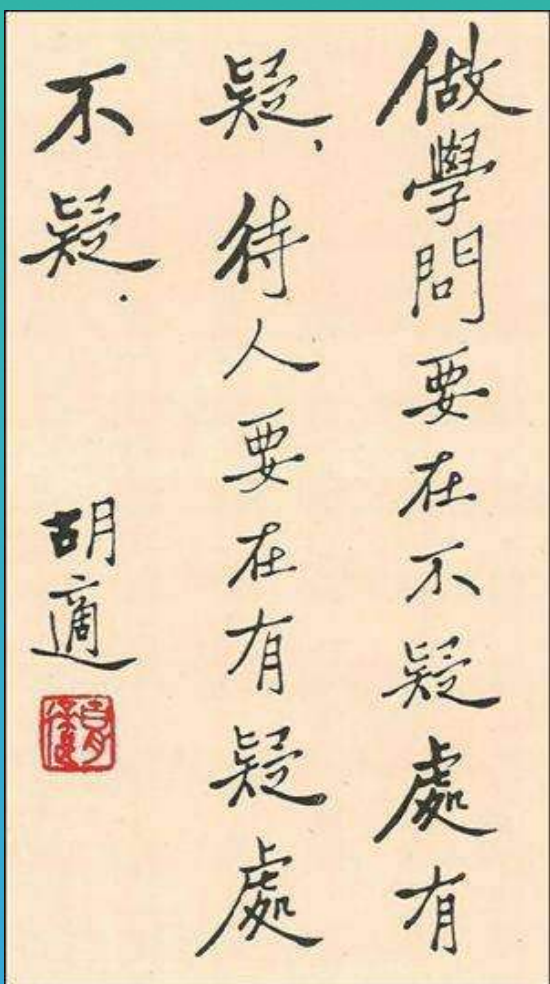 做學問要在不疑處有
疑、待人要在有疑處
不疑．
胡適